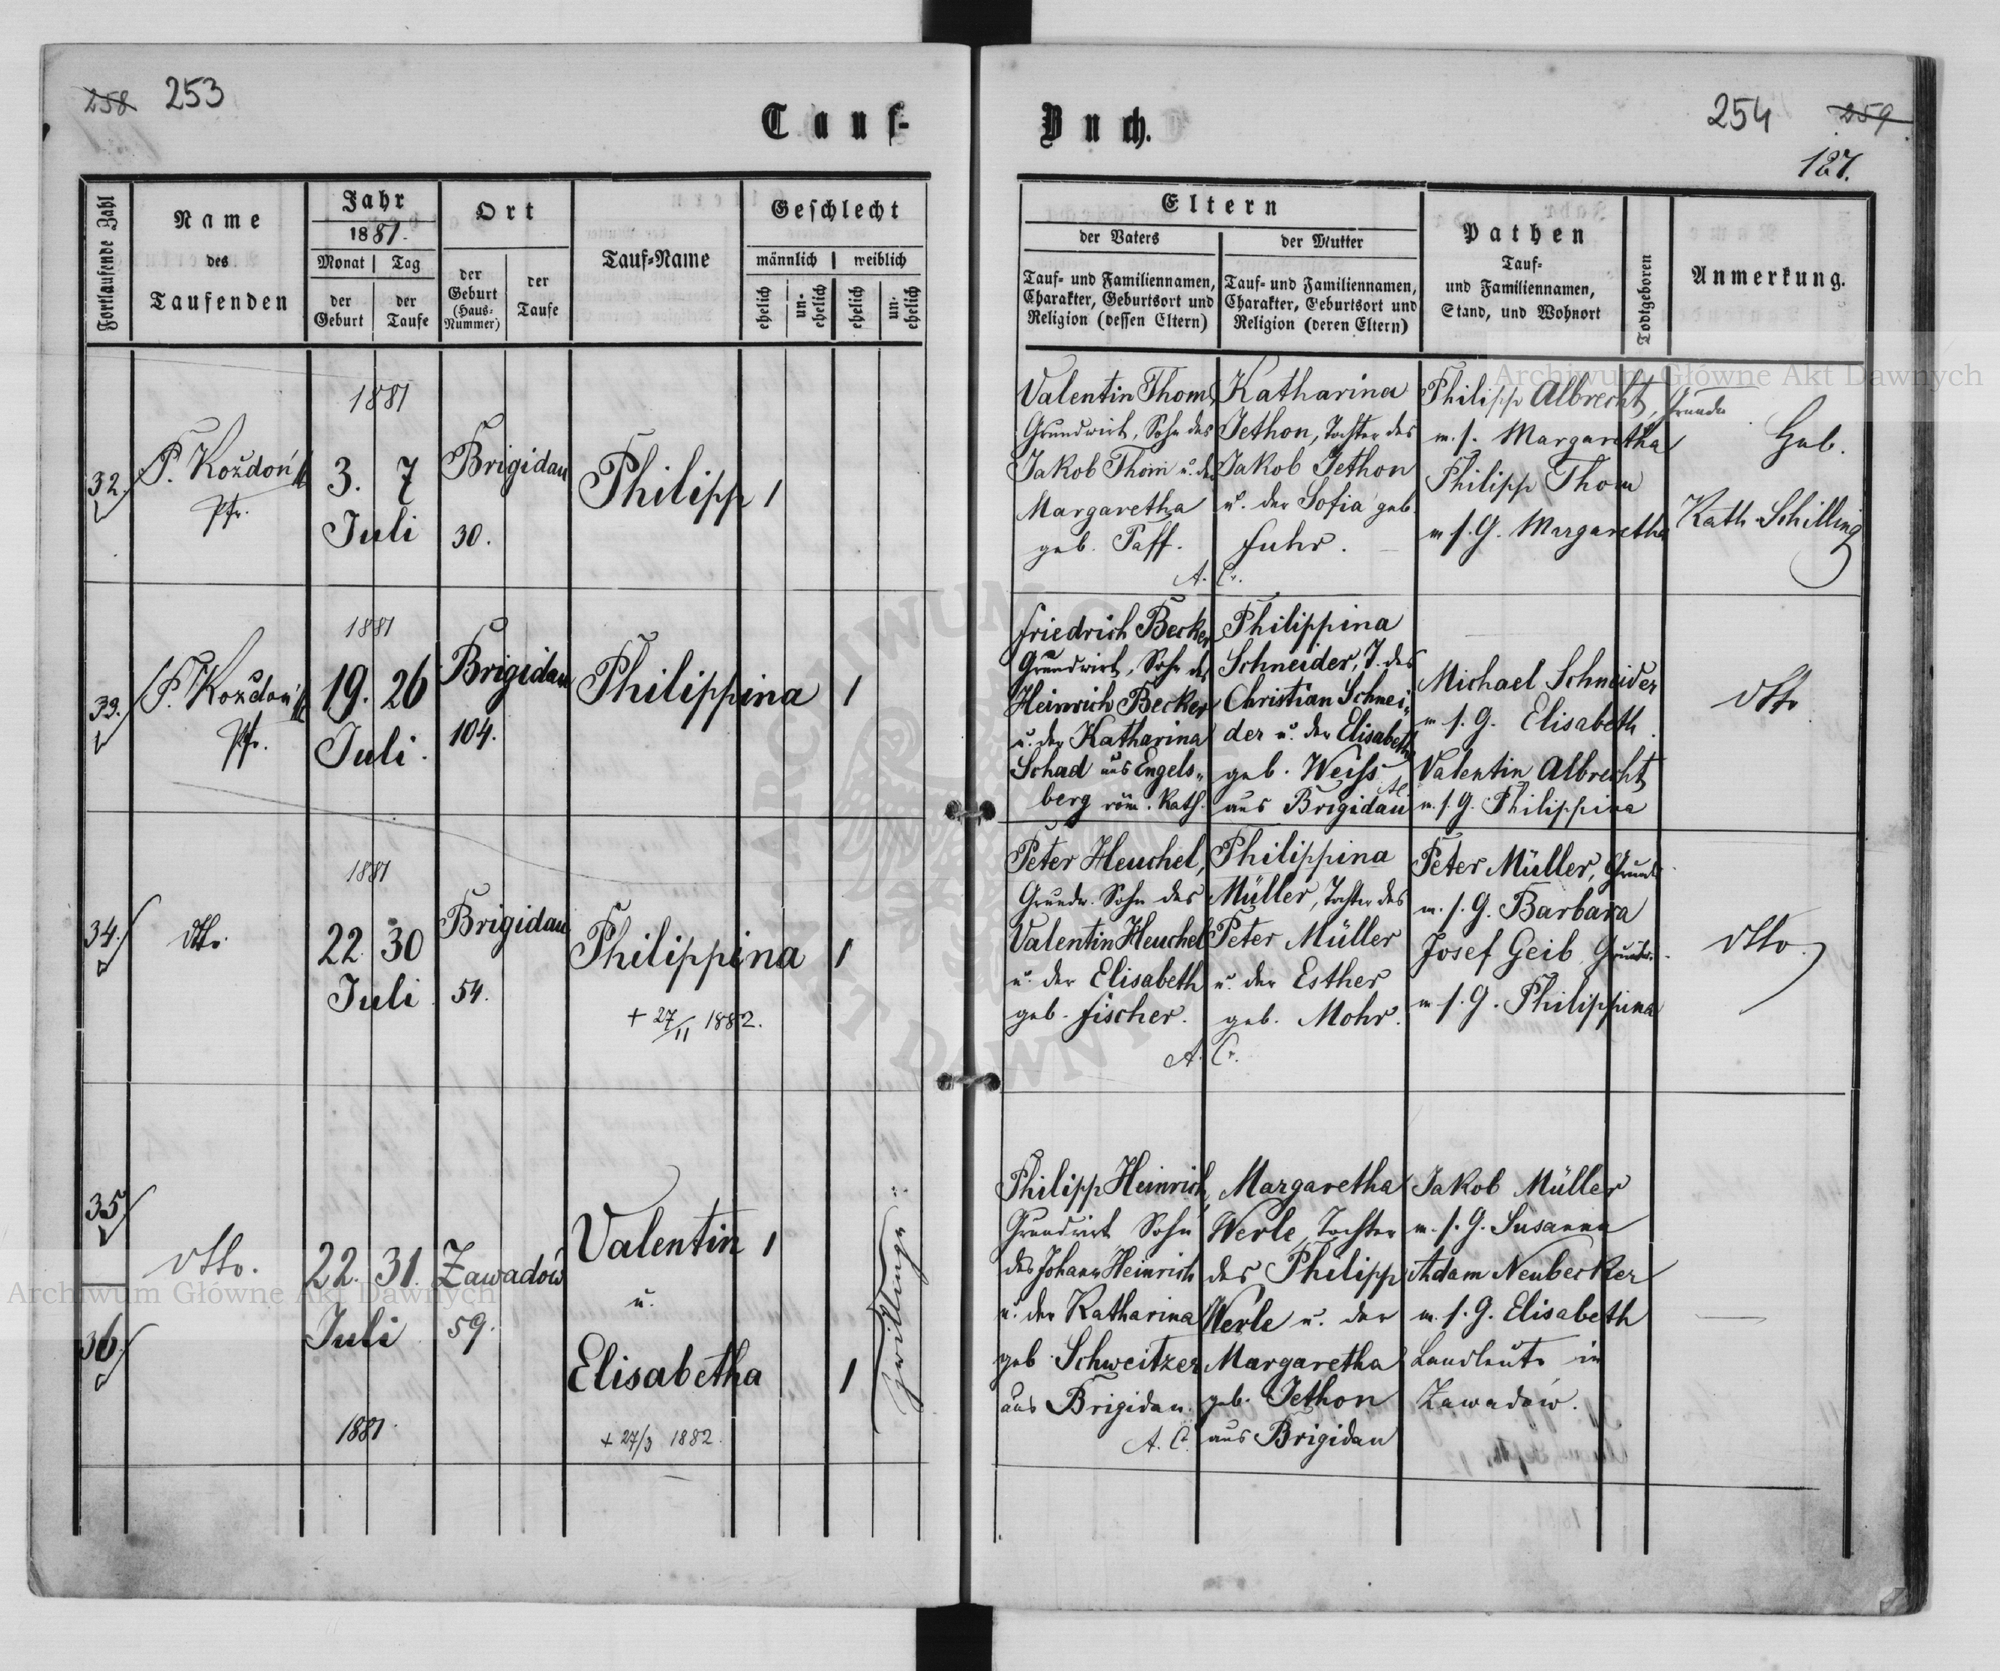 258 253
Tauf-
Fortlaufende Zahl
Name
des
Taufenden
Jahr
1881.
Monat Tag
der Geburt
der Taufe
Ort
der
Geburt
(Haus-
Nummer)
der
Taufe
Tauf-Name
Geschlecht
männlich weiblich
ehelich
un-
ehelich
ehelich
un-
ehelich
32.
P. Koždoń
Pfr.
1881
3. 7
Juli
Brigidau
30.
Philipp 1
33.
P. Koždoń
Pfr.
1881
19. 26
Juli.
Brigidau
104.
Philippina 1
34.
dtto.
1881
22. 30
Juli
Brigidau
54.
Philippina 1
+ 27/II 1882.
35
36.
dtto.
22. 31.
Juli
1881.
Zawadów
59.
Valentin 1
u.
Elisabetha 1
+ 27/3 1882.
Zwillinge
Buch.
254 259
127.
Eltern
der Vaters
Tauf- und Familiennamen,
Charakter, Geburtsort und
Religion (dessen Eltern)
der Mutter
Tauf- und Familiennamen,
Charakter, Geburtsort und
Religion (deren Eltern)
Pathen
Tauf-
und Familiennamen,
Stand, und Wohnort
Todtgeboren
Anmerkung.
Valentin Thom,
Grundwirt, Sohn des
Jakob Thom u. der
Margaretha
geb. Paff.
A. C.
Katharina
Jethon, Tochter des
Jakob Jethon
u. der Sofia geb.
Fuhr.
Philipp Albrecht, Grundw
m. s. Margaretha
Philipp Thom
m s. G. Margaretha
Heb.
Kath. Schilling
Friedrich Becker
Grundwirt, Sohn des
Heinrich Becker
u. der Katharina
Schad aus Engels-
berg röm. Kath.
Philippina
Schneider, T. des
Christian Schnei-
der u. der Elisabeth
geb. Weiss
aus Brigidau
Michael Schneider
m s. G. Elisabeth.
Valentin Albrecht
m. s. G. Philippina
dtto
Peter Heuchel,
Grundw. Sohn des
Valentin Heuchel
u. der Elisabeth
geb. Fischer.
A. C.
Philippina
Müller, Tochter des
Peter Müller
u. der Esther
geb. Mohr.
Peter Müller, Grundw.
m. s. G. Barbara
Josef Geib Grundw.
m s. G. Philippina
dtto.
Philipp Heinrich,
Grundwirt Sohn
des Johann Heinrich
u. der Katharina
geb. Schweitzer
aus Brigidau.
A. C.
Margaretha
Werle, Tochter
des Philipp
Werle u. der
Margaretha
geb. Jethon
aus Brigidau
Jakob Müller
m. s. G. Susanna
Adam Neubecker
m. s. G. Elisabeth
Landleute in
Zawadów.
Archiwum Główne Akt Dawnych
Archiwum Główne Akt Dawnych
ARCHIWUM
AKT DAWNYCH